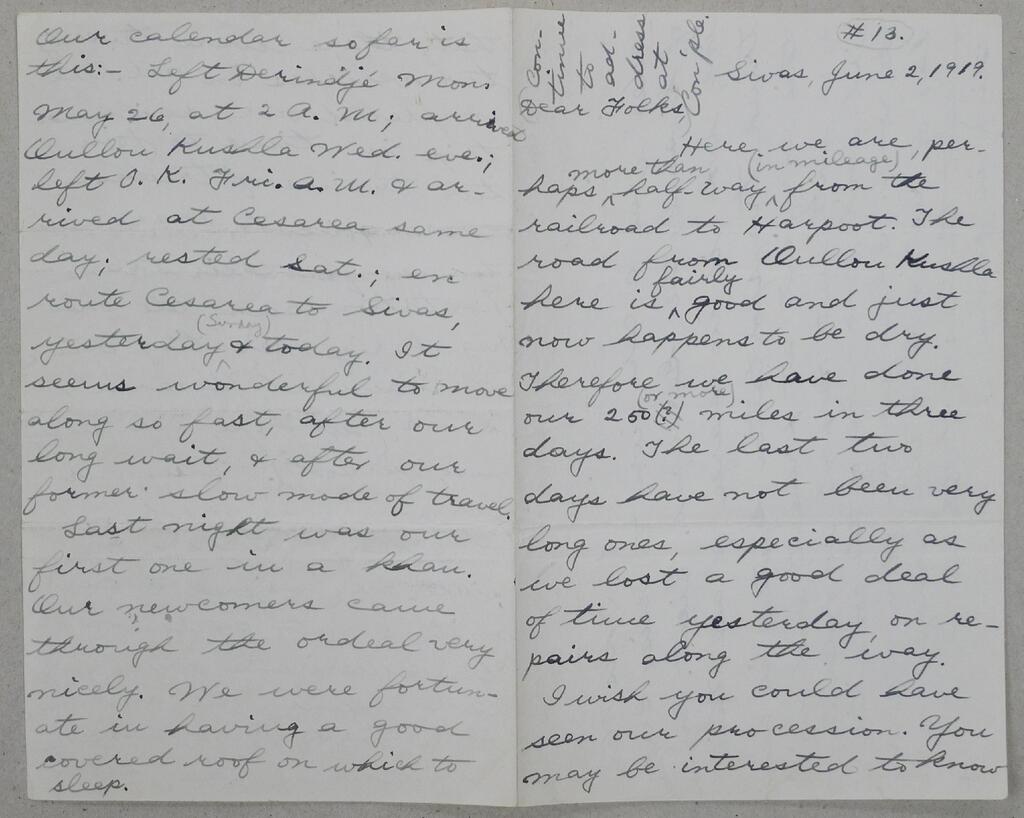 Our calendar so far is
this:- Left Derindjé Mon.
May 26, at 2 A.M; arrived
Oullou Kushla Wed. eve.;
left O.K. Fri. A.M. & ar-
rived at Cesarea same
day; rested Sat.; en
route Cesarea to Sivas,
(Sunday)
yesterday & today. It
seems wonderful to move
along so fast, after our
long wait, & after our
former slow mode of travel.
Last night was our
first one in a khan.
Our newcomers came
through the ordeal very
nicely. We were fortun-
ate in having a good
covered roof on which to
sleep.
# 13.
(Con-
tinue
to
ad-
dress
at
Con'ple.)
Sivas, June 2, 1919.
Dear Folks,
Here we are, per-
more than (in mileage)
haps half-way from the
railroad to Harpoot. The
road from Oullou Kushla
fairly
here is good and just
now happens to be dry.
Therefore we have done
(or more)
our 250(?) miles in three
days. The last two
days have not been very
long ones, especially as
we lost a good deal
of time yesterday on re-
pairs along the way.
I wish you could have
seen our procession. You
may be interested to know